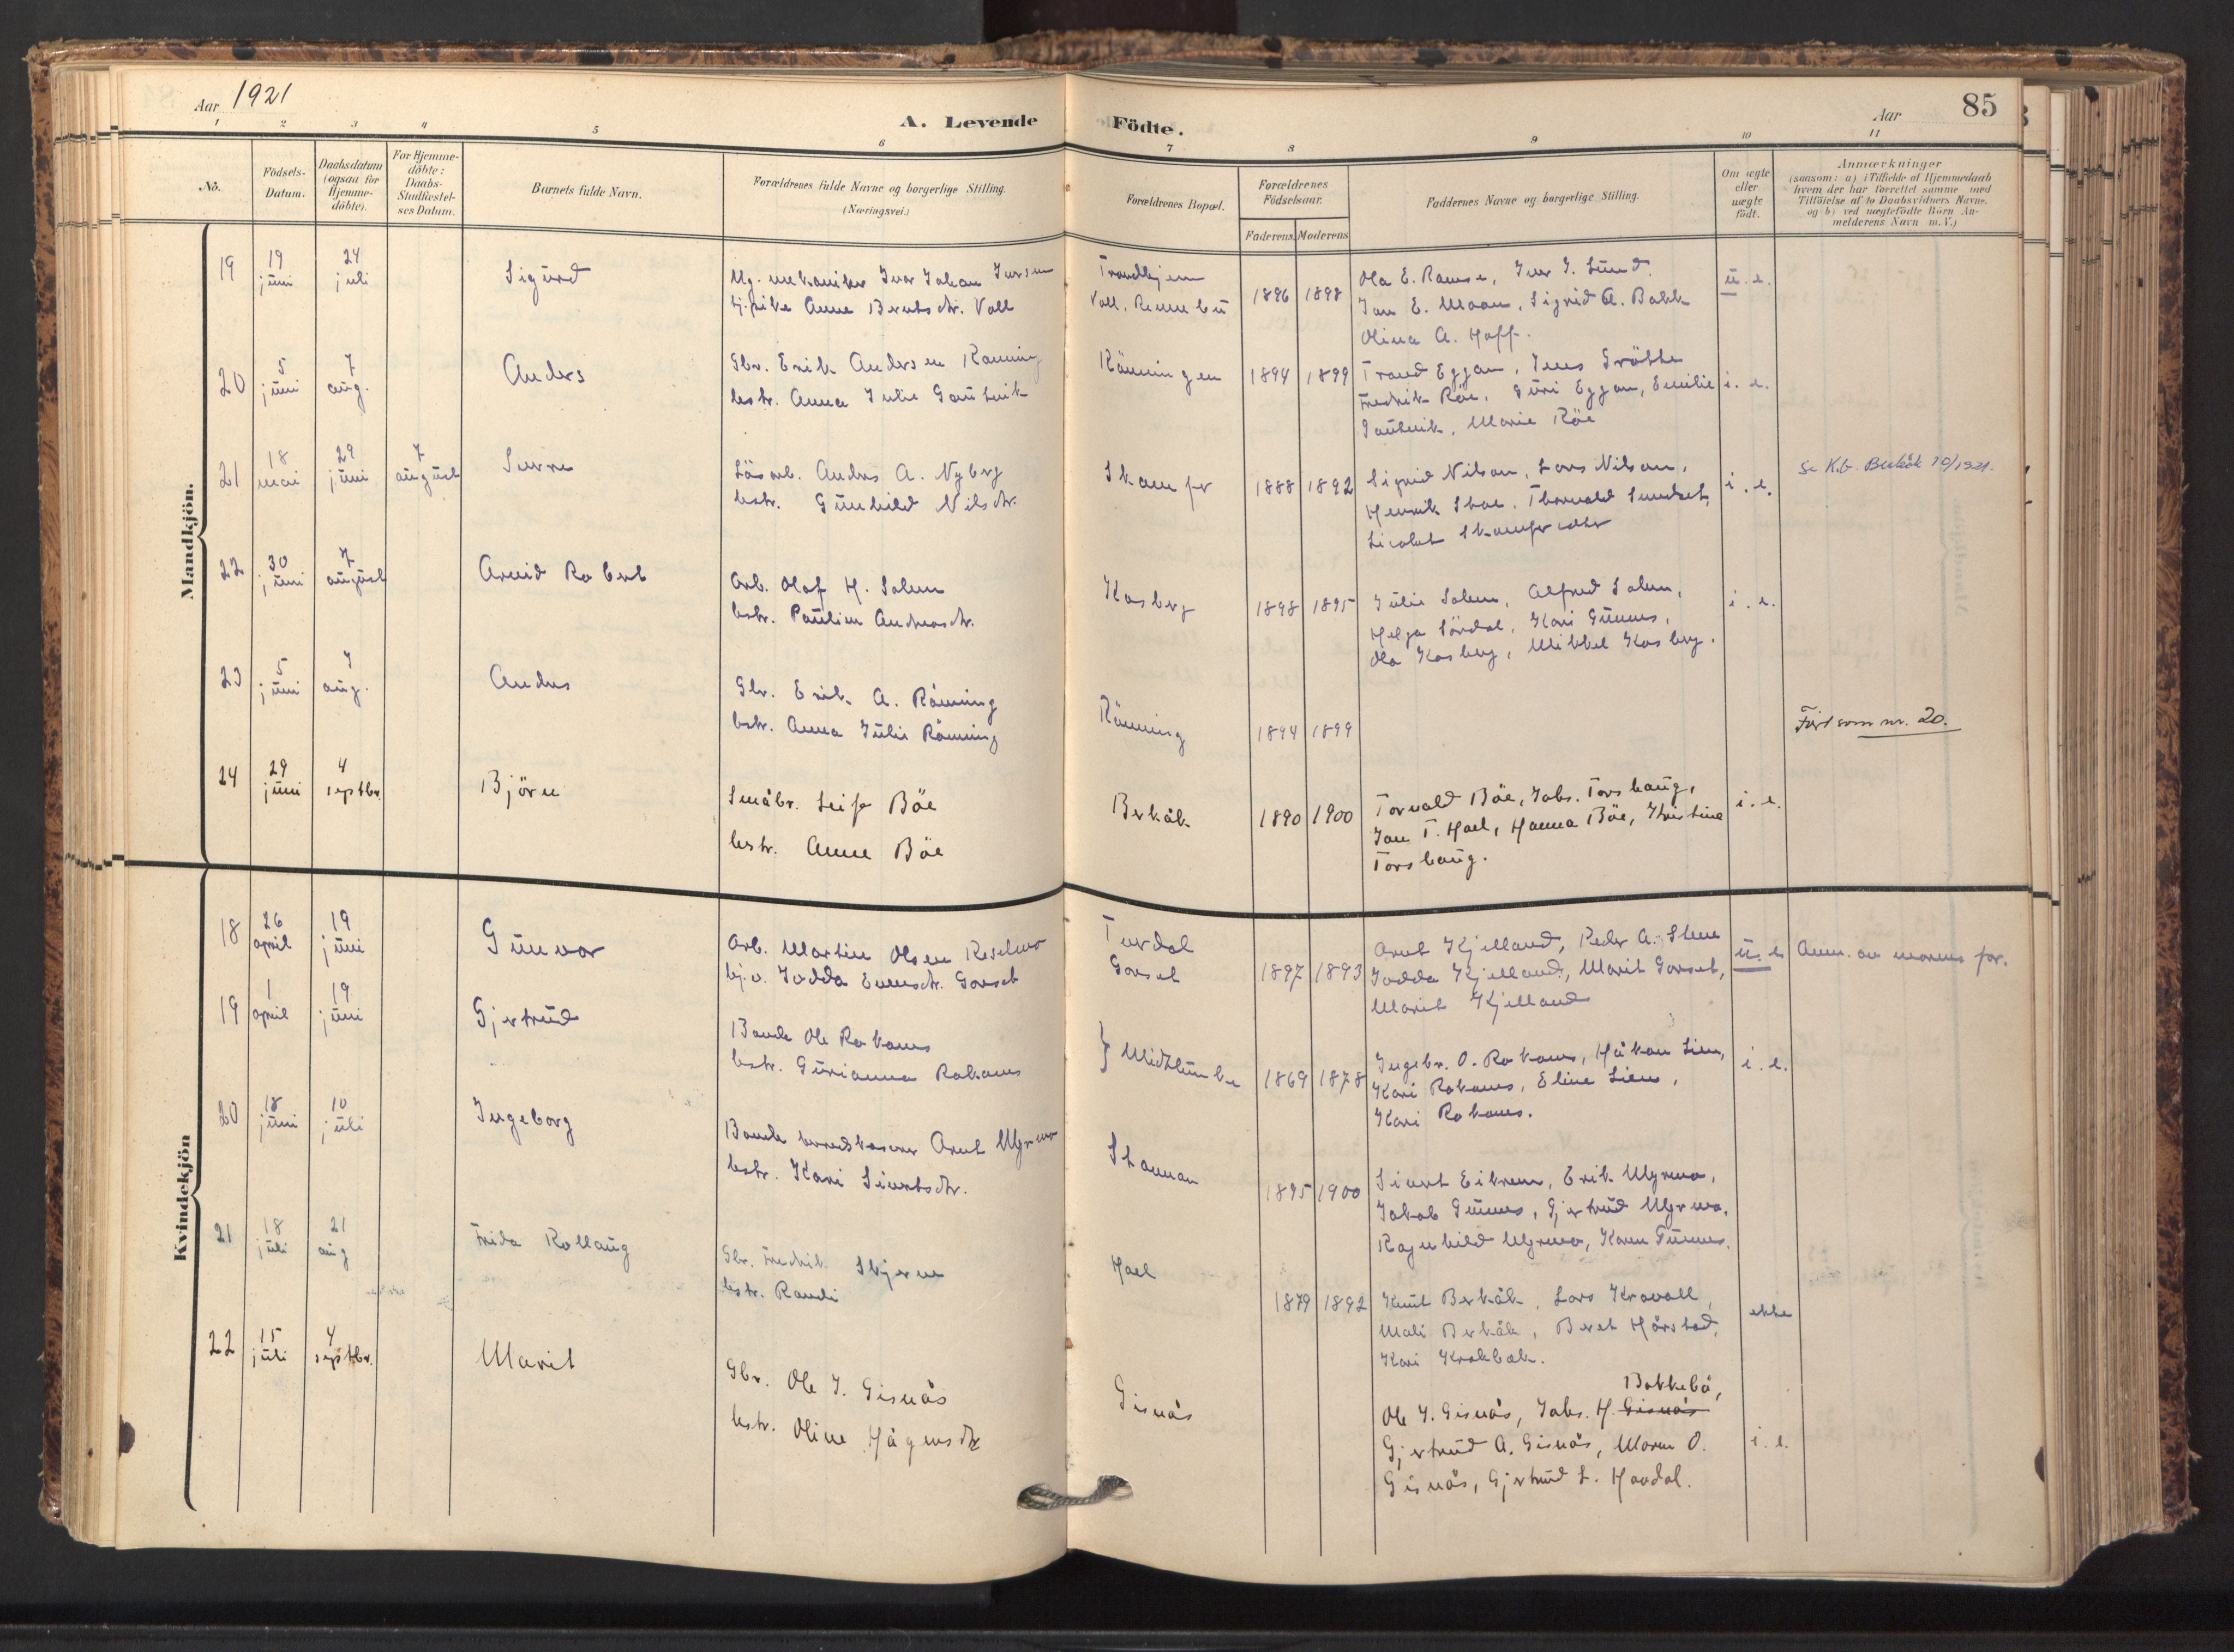 Aar 1921
A. Levende
Födte.
Aar
85
1 2 3 4 5 6 7 8 9 10 11
No.
Födsels-Datum.
Daabsdatum (ogsaa for Hjemme-döbte).
For Hjemme-döbte: Daabs-Stadfæstel-ses Datum.
Barnets fulde Navn.
Forældrenes fulde Navne og borgerlige Stilling. (Næringsvei.)
Forældrenes Bopæl.
Forældrenes Födselsaar.
Faderens. Moderens.
Faddernes Navne og borgerlige Stilling.
Om ægte eller uægte födt.
Anmærkninger
(saasom: a) i Tilfælde af Hjemmedaab
hvem der har forrettet samme med
Tilföielse af to Daabsvidners Navne.
og b) ved uægtefödte Börn An-
melderens Navn m. V.)
Mandkjön.
19 19 juni 24 juli Sigurd
Ug. mekaniker Ivar Johan Iversen
pike Anne Berntsdtr. Voll
Trondhjem
Voll, Rennebu
1896 1898
Ola E. Ramse, Iver J. Lund,
Jon E. Moan, Sigrid A. Bakk
Olina A. Hoff.
u. e.
20 5 juni 7 aug. Anders
Gbr. Erik Andersen Rönning
hstr. Anna Julie Gautvik
Rönningen
1894 1899
Trond Eggan, Jens Gröthe
Fredrik Röe, Guri Eggan, Emilie
Gautvik, Marie Röe
i. e.
21 18 mai 29 juni 7 august Sverre
Lösarb. Anders A. Nyberg
hstr. Gunhild Nilsdtr.
Skamfer
1888 1892
Sigrid Nilson, Lars Nilson,
Henrik Stoe, Thorvald Sundset,
Skamfersæter
i. e.
Se K.b. Berkåk 10/1921.
22 30 juni 7 august Arvid Robert
Arb. Olaf H. Solem
hstr. Pauline Andreasdtr.
Kosberg
1898 1895
Julie Solem, Alfred Solem,
Helga Sördal, Kari Gunnes,
Ola Kosberg, Mikkel Kosberg.
i. e.
23 5 juni 7 aug. Anders
Gbr. Erik A. Rönning
hstr. Anna Julie Rönning
Rönning
1894 1899
Fört som nr. 20.
24 29 juni 4 septbr. Björn
Småbr. Leif Böe
hstr. Anne Böe
Berkåk
1890 1900
Torvald Böe, Johs. Torshaug,
Jon T. Hoel, Hanna Böe, Kristine
Torshaug.
i. e.
Kvindekjön
18 26 april 19 juni Gunvor
Arb. Martin Olsen Reselmo
hj.v. Jodda Evensdtr. Gorset
Gorset
1897 1893
Arnt Kjelland, Peder A. Stene
Jodda Kjelland, Marit Gorset,
Marit Kjelland
u. e
Anm. av morens far.
19 1 april 19 juni Gjertrud
Bonde Ole Rokoms
hstr. Gurianna Rokoms
Midtlumbe
1869 1878
Ingebr. O. Rokoms, Håkon Lien,
Kari Rokoms, Eline Lien,
Kari Rokoms.
i. e.
20 18 juni 10 juli Ingeborg
Bonde herredskasserer Arnt Myrmo
hstr. Kari Sivertsdtr.
Stamnan
1895 1900
Sivert Eikrem, Erik Myrmo,
Jakob Gunnes, Gjertrud Myrmo,
Ragnhild Myrmo, Karen Gunnes.
21 18 juli 21 aug Frida Rollaug
Gbr. Fredrik Skjerve
hstr. Randi
Hoel
1879 1892
Knut Berkåk, Lars Kravoll,
Mali Berkåk, Beret Hårstad,
Kari Krokbæk.
ekte
22 15 juli 4 septbr. Marit
Gbr. Ole J. Gisnås
hstr. Oline Hågensdtr
Gisnås
Bakkebö,
Ole J. Gisnås, Johs. H. Gisnås
Gjertrud A. Gisnås, Maren O.
Gisnås, Gjertrud L. Havdal.
i. e.